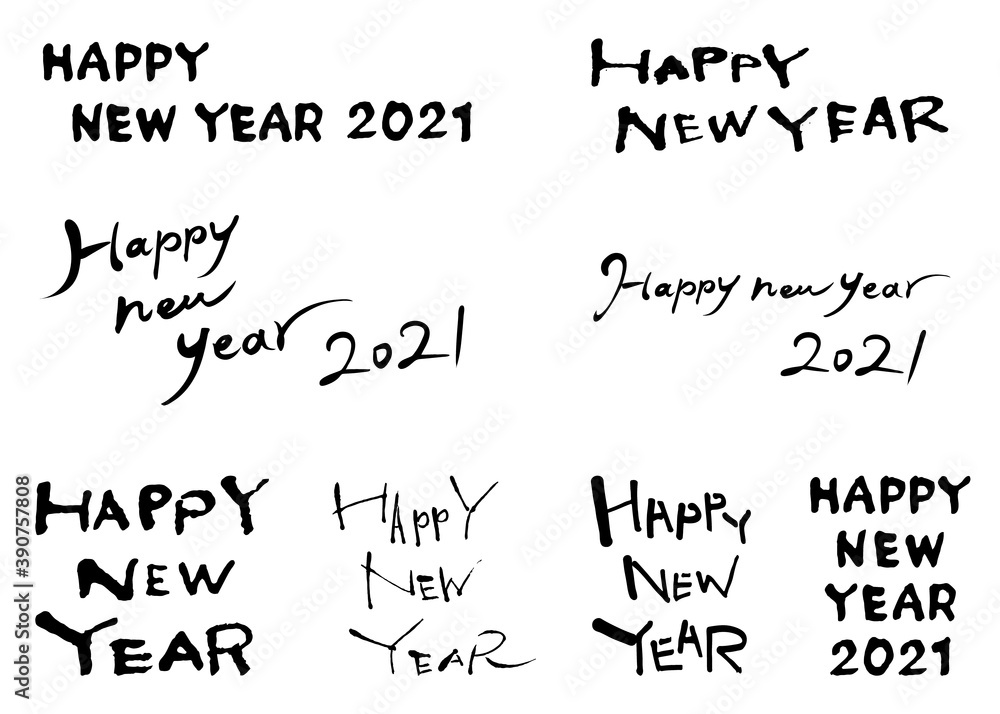 HAPPY
NEW YEAR 2021
HAPPY
NEW YEAR
Happy
new
year 2021
Happy new year
2021
HAPPY
NEW
YEAR
HAppY
NEW
YEAR
HAPPY
NEW
YEAR
HAPPY
NEW
YEAR
2021
Adobe Stock | #390757808